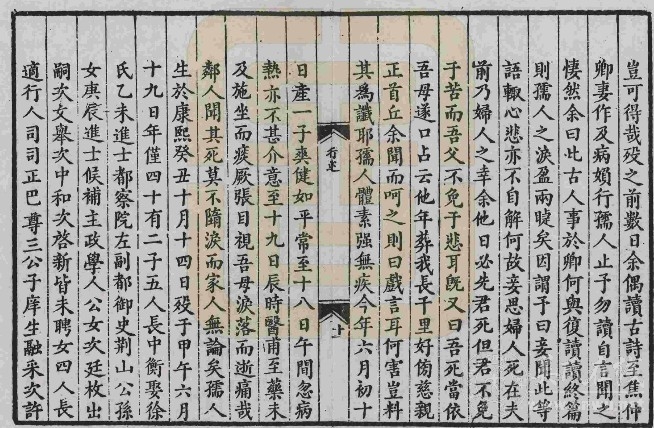 豈可得哉歿之前數日余偶讀古詩至焦仲
卿妻作及病娟行孺人止予勿讀自言聞之
悽然余曰此古人事於卿何與復讀讀終篇
則孺人之淚盈兩睫矣因謂予曰妾聞此等
語輒心悲亦不自解何故妾思婦人死在夫
前乃婦人之幸余他日必先君死但君不免
于苦而吾父不免于悲耳旣又曰吾死當依
吾母遂口占云他年葬我長千里好傍慈親
正首丘余聞而呵之則曰戲言耳何害豈料
其為讖耶孺人體素强無疾今年六月初十
行述
十
日產一子爽健如平常至十八日午間忽病
熱亦不甚介意至十九日辰時醫甫至藥未
及施坐而痰厥張目視吾母淚落而逝痛哉
鄰人聞其死莫不隋淚而家人無論矣孺人
生於康熙癸丑十月十四日歿于甲午六月
十九日年僅四十有二子五人長中衡娶徐
氏乙未進士都察院左副都御史荆山公孫
女庚辰進士候補主政學人公女次廷枚出
嗣次文舉次中和次啓新皆未聘女四人長
適行人司司正巴尊三公子庠生融宋次許